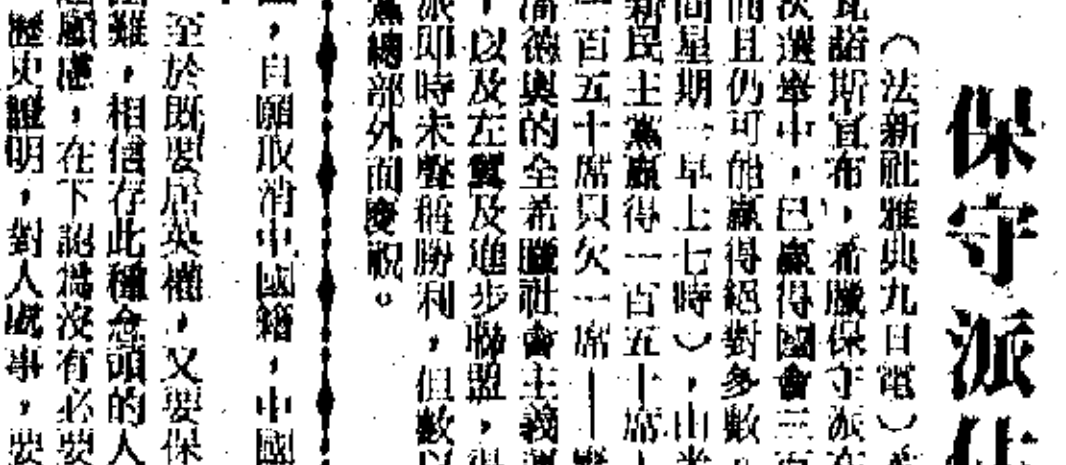 保守派
（法新社雅典九日電）
諾斯宣布，希臘保守派在
次選舉中，已贏得國會三
而且仍可能贏得絕對多數。
間星期一早上七時），由米
新民主黨贏得一百五十席
百五十席只欠一席——
潘德奧的全希臘社會主義
，以及左翼及進步聯盟，
派即時未聲稱勝利，但數以
黨總部外面慶祝。
，自願取消中國籍，中國
至於既要居英權，又要保
難，相信存此種念頭的人
顧慮，在下認爲沒有必要
歷史證明，對人處事，要